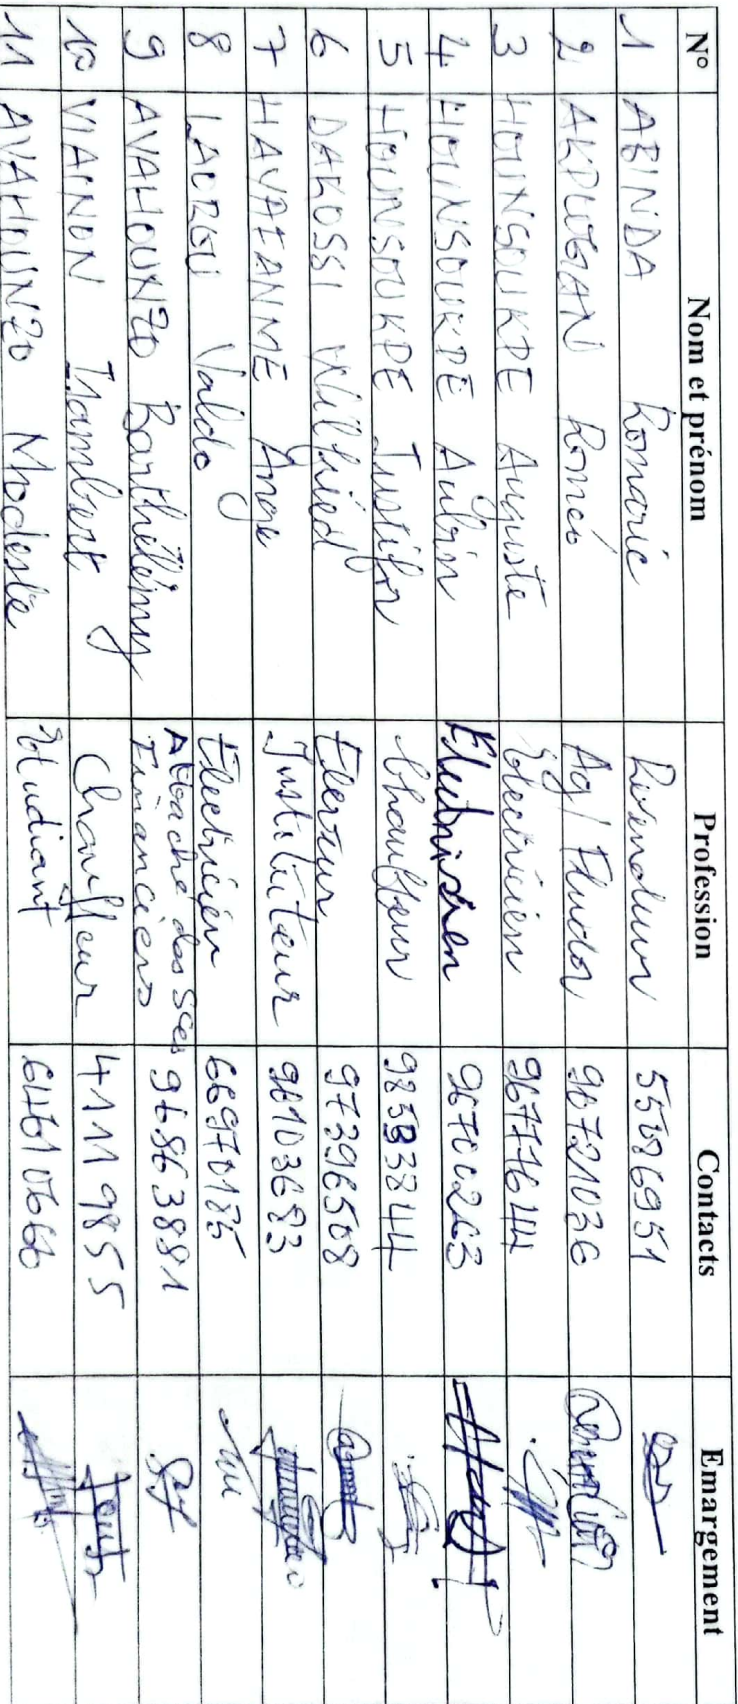 N° Nom et prénom Profession Contacts Emargement
1 ABINDA Romaric Revendeur 55086951
2 AKPLOGAN Roméo 96721036
3 HOUNSOUKPE Auguste Electricien 96777644
4 HOUNSOUKPE Aubin 96700263
5 HOUNSOUKPE Chauffeur
6 DAKOSSI Wilfried Eleveur 97396508
7 Ange Instituteur 96103683
8 Valdo Electricien 66970185
9 AVAHOUNZO Barthélémy Attaché des Sces Financiers 96863881
10 VIAINON Chauffeur 41119855
11 AVAHOUNZO Modeste Etudiant